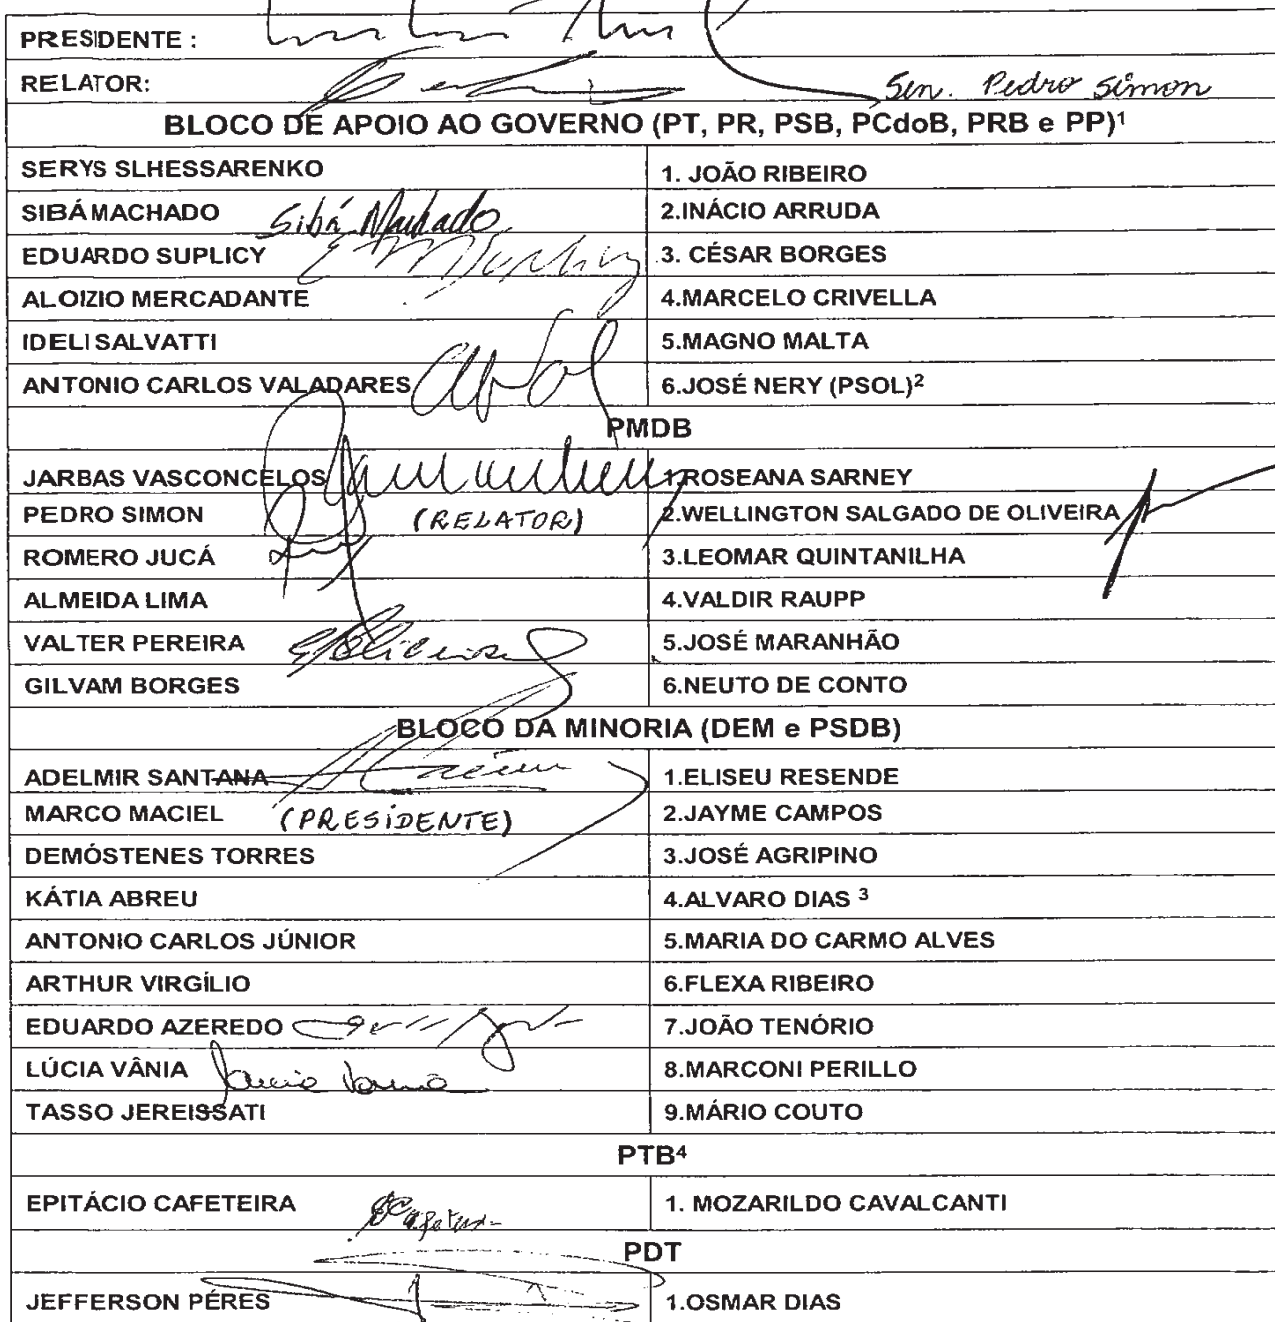 PRESIDENTE :
RELATOR: Sen. Pedro Simon
BLOCO DE APOIO AO GOVERNO (PT, PR, PSB, PCdoB, PRB e PP)¹
SERYS SLHESSARENKO 1. JOÃO RIBEIRO
SIBÁ MACHADO Sibá Machado 2.INÁCIO ARRUDA
EDUARDO SUPLICY 3. CÉSAR BORGES
ALOIZIO MERCADANTE 4.MARCELO CRIVELLA
IDELI SALVATTI 5.MAGNO MALTA
ANTONIO CARLOS VALADARES 6.JOSÉ NERY (PSOL)²
PMDB
JARBAS VASCONCELOS 1.ROSEANA SARNEY
PEDRO SIMON (RELATOR) 2.WELLINGTON SALGADO DE OLIVEIRA
ROMERO JUCÁ 3.LEOMAR QUINTANILHA
ALMEIDA LIMA 4.VALDIR RAUPP
VALTER PEREIRA 5.JOSÉ MARANHÃO
GILVAM BORGES 6.NEUTO DE CONTO
BLOCO DA MINORIA (DEM e PSDB)
ADELMIR SANTANA 1.ELISEU RESENDE
MARCO MACIEL (PRESIDENTE) 2.JAYME CAMPOS
DEMÓSTENES TORRES 3.JOSÉ AGRIPINO
KÁTIA ABREU 4.ALVARO DIAS ³
ANTONIO CARLOS JÚNIOR 5.MARIA DO CARMO ALVES
ARTHUR VIRGÍLIO 6.FLEXA RIBEIRO
EDUARDO AZEREDO 7.JOÃO TENÓRIO
LÚCIA VÂNIA Lucia Vania 8.MARCONI PERILLO
TASSO JEREISSATI 9.MÁRIO COUTO
PTB⁴
EPITÁCIO CAFETEIRA 1. MOZARILDO CAVALCANTI
PDT
JEFFERSON PÉRES 1.OSMAR DIAS